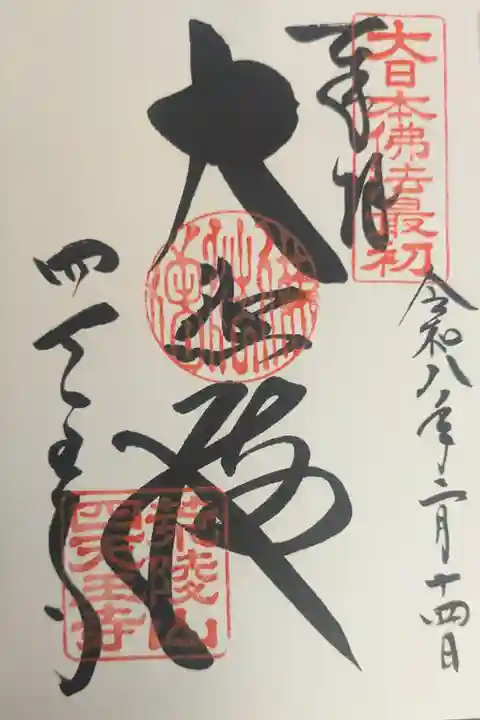 大日本佛法最初
奉拝
令和八年二月十四日
大悲殿
四天王寺
荒陵山
四天王寺